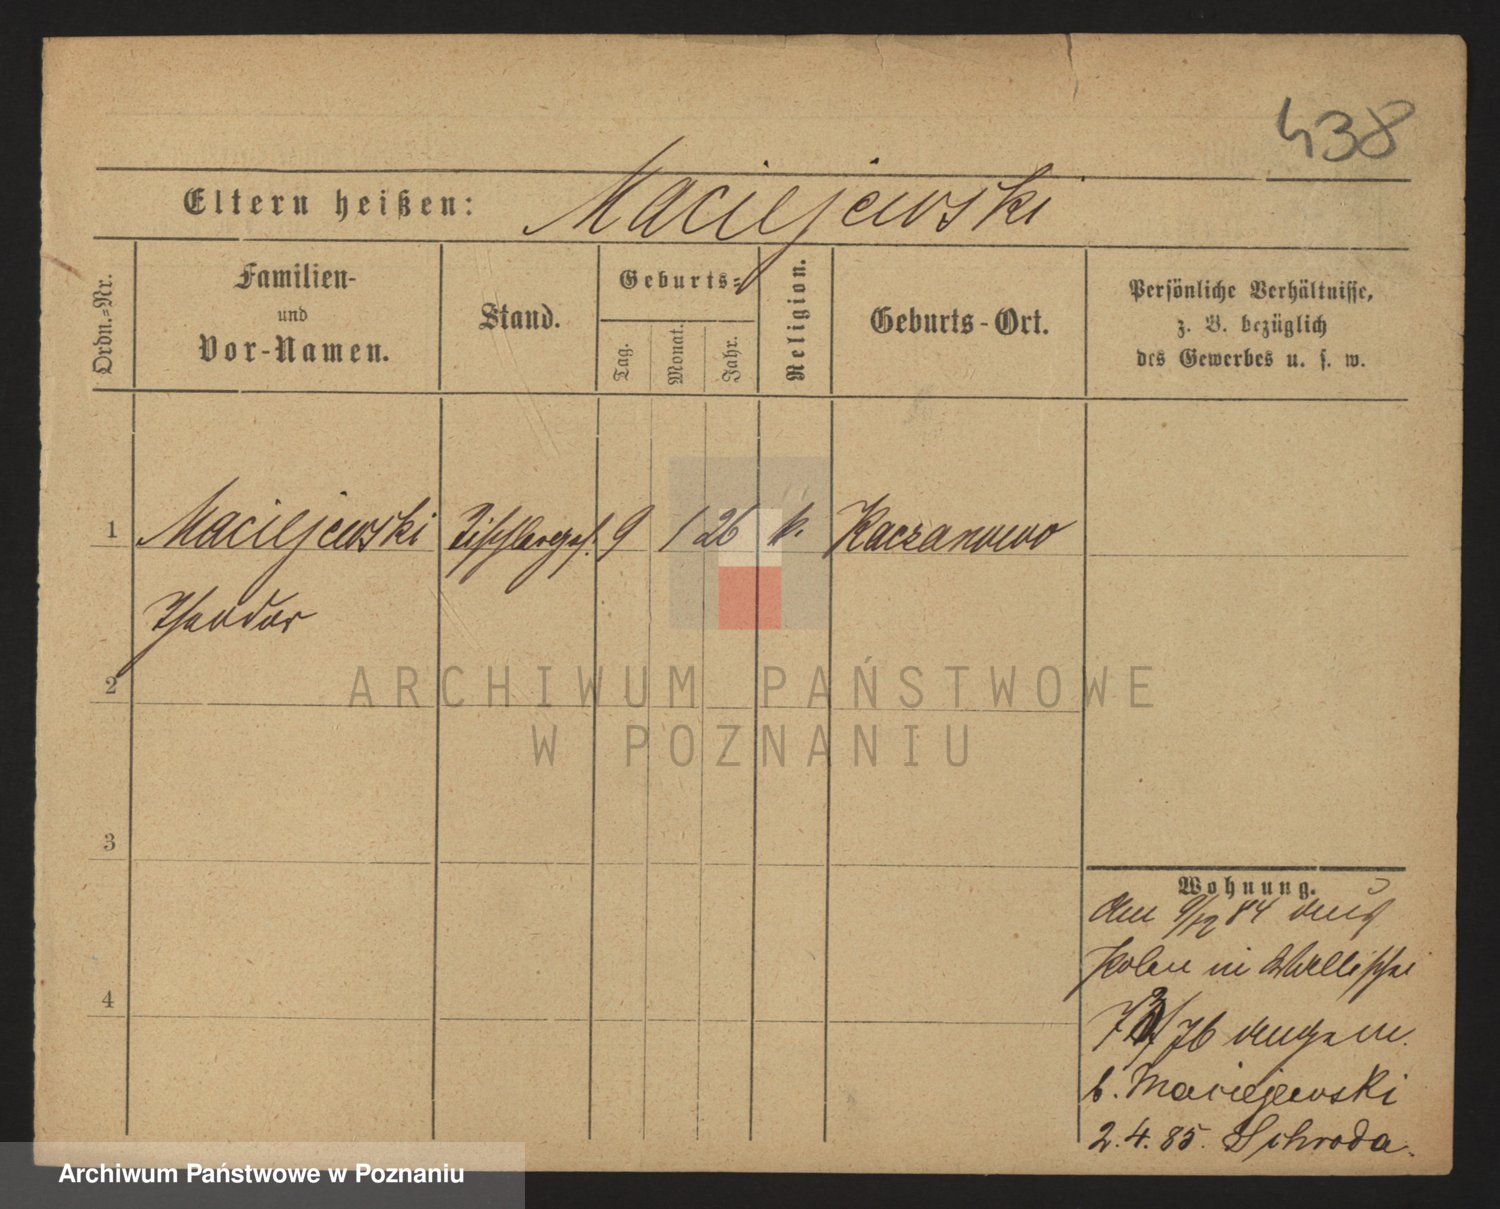 438
Eltern heißen: Maciejewski
Ordn.-Nr.
Familien-
und
Vor-Namen.
Stand.
Geburts-
Tag.
Monat.
Jahr.
Religion.
Geburts-Ort.
Persönliche Verhältnisse,
z. B. bezüglich
des Gewerbes u. s. w.
1 Maciejewski Tischlerges. 9 1 26 k. Kaczanowo
Theodor
2
3
4
Wohnung.
Am 9/12 84 aus
Polen in Wallischei
73/76 angem.
b. Maciejewski
2.4.85. Schroda.
ARCHIWUM PAŃSTWOWE
W POZNANIU
Archiwum Państwowe w Poznaniu